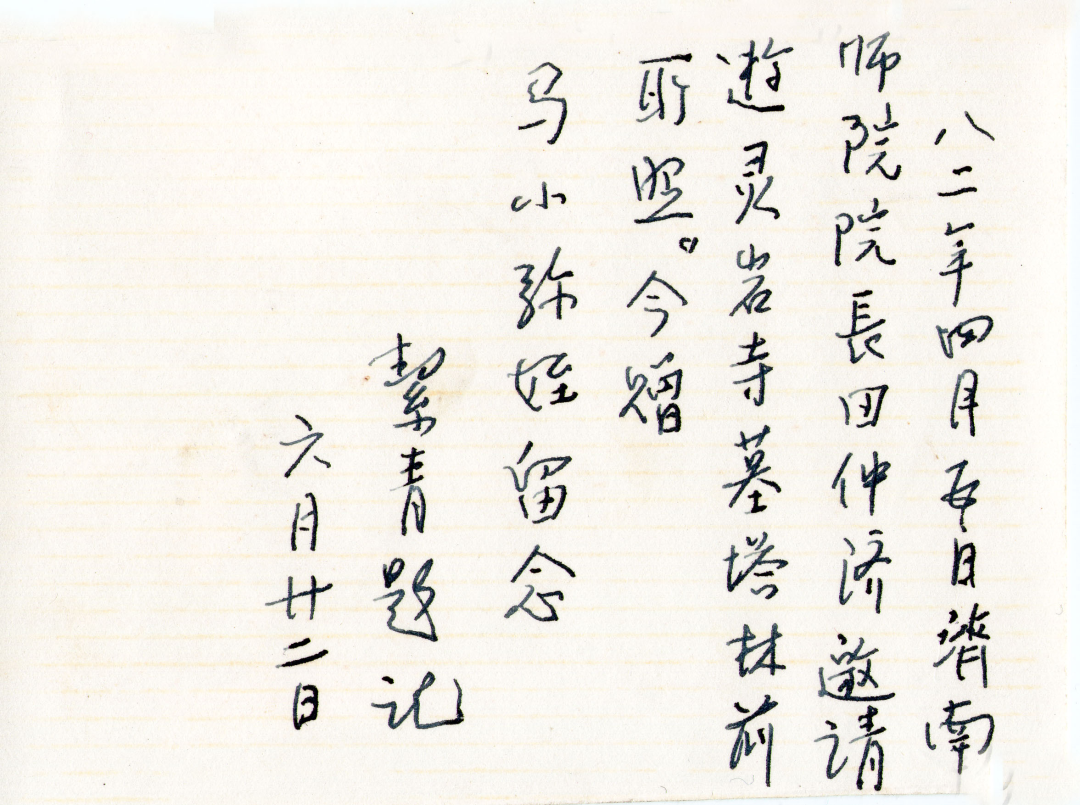 八二年四月五日濟南
师院院長田仲济邀请
遊灵岩寺墓塔林前
所照。今赠
马小弥姪留念
絜青题记
六月廿二日